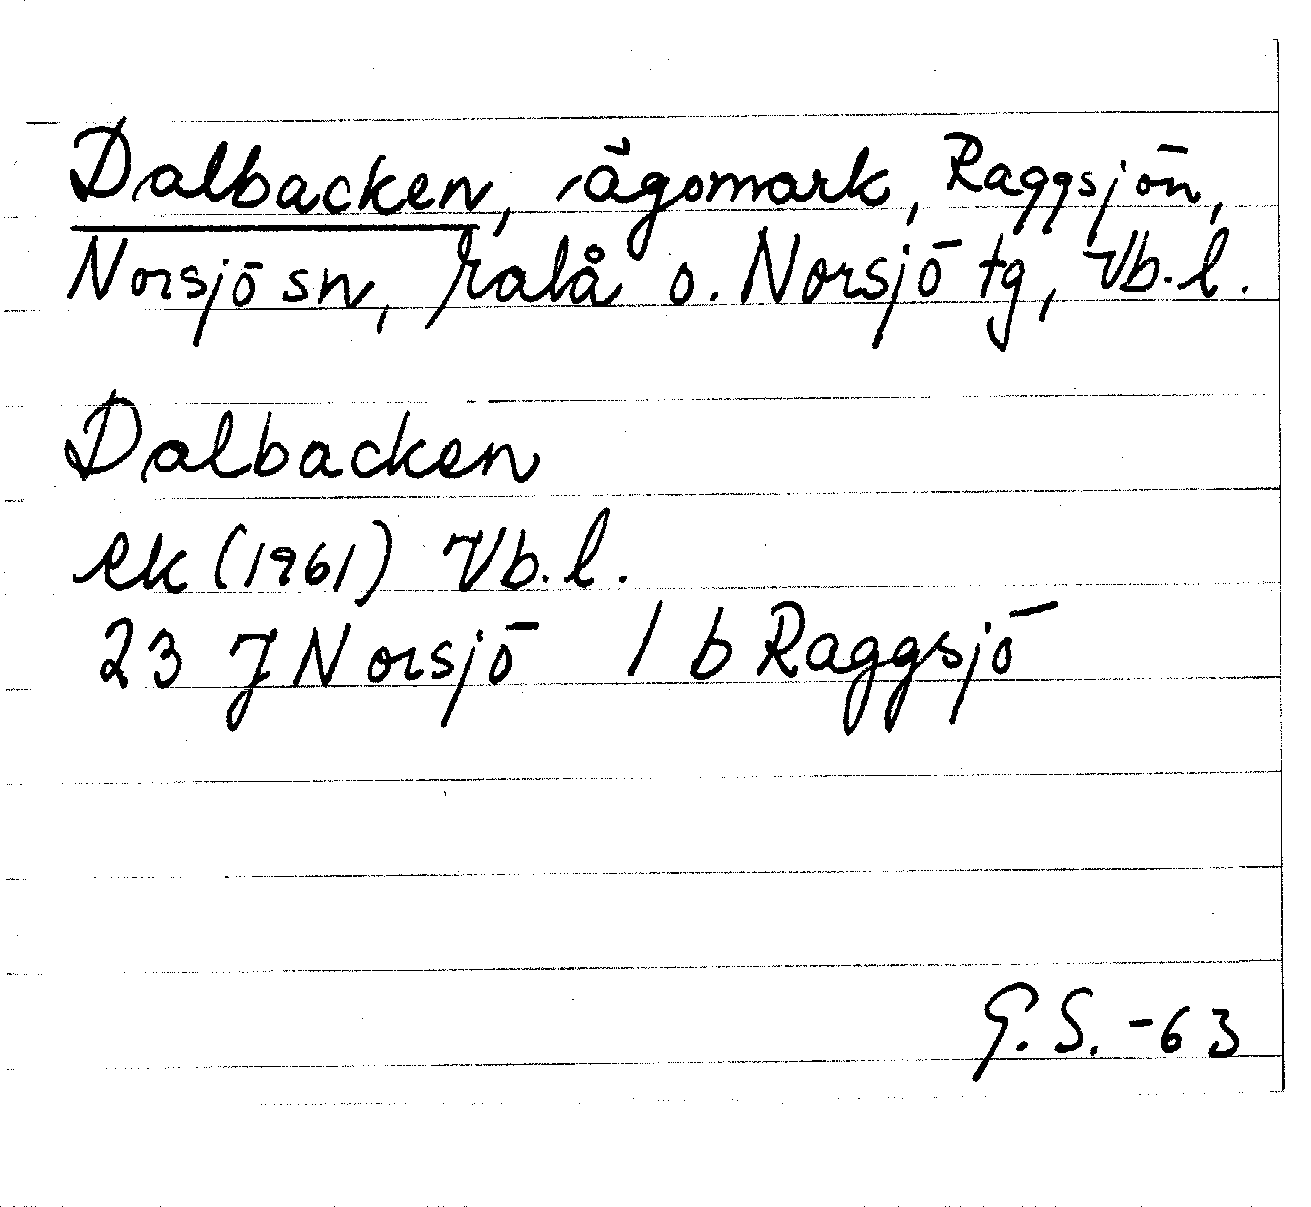 Dalbacken, ägomark, Raggsjön,
Norsjö sn, Malå o. Norsjö tg, Vb. l.
Dalbacken
ek (1961) Vb. l.
23 J Norsjö 1 b Raggsjö
G. S. -63